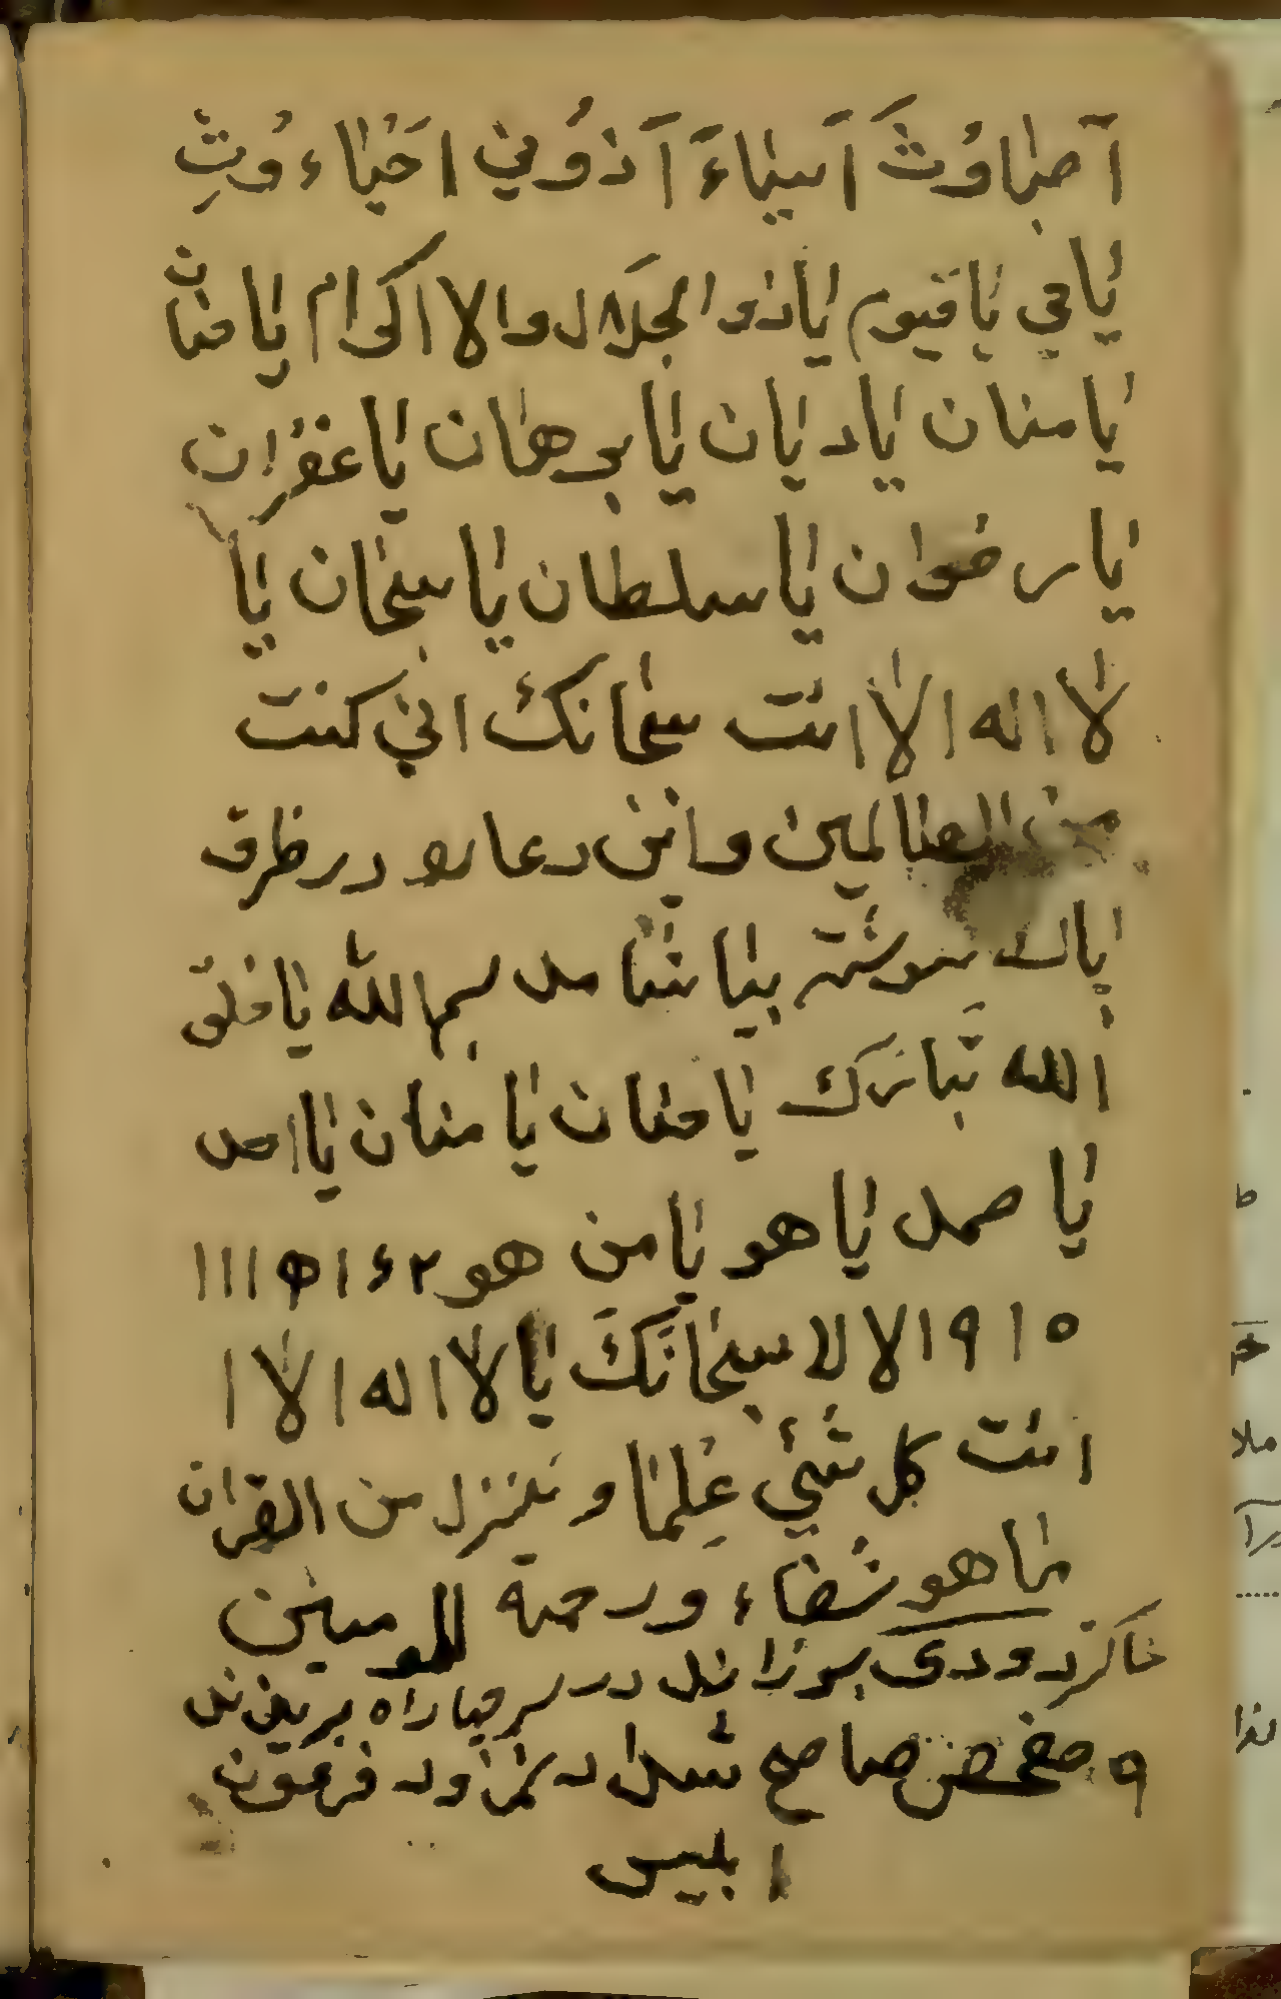 آصباوُثَ آسیاءَ آذوُنی احْیاء وُثِ
یا حی یا قیوم یا ذو الجلال والااکرام یا حنان
یا منان یا دیان یا برهان یا غفران
یا رضوان یا سلطان یا سبحان یا
لا اله الا انت سبحانک انی کنت
من الضالمین و این دعا رو در ظرف
پاک بنوشته بیاشامد بسم الله یا خلق
الله تبارک یا حنان یا منان یا احد
یا صمد یا هو یا من هو ۲ ۶ ۱ ۵ ۱۱۱
۵ ۱ ۹ ۱ لا لا سبحانک یا لا اله الا ا
انت کل شیئ عِلما و ننزل من القران
ما هو شفاء ورحمة للمومنین
در سر چهار راه بریزند
۹ شداد نمرود فرعون
ابلیس